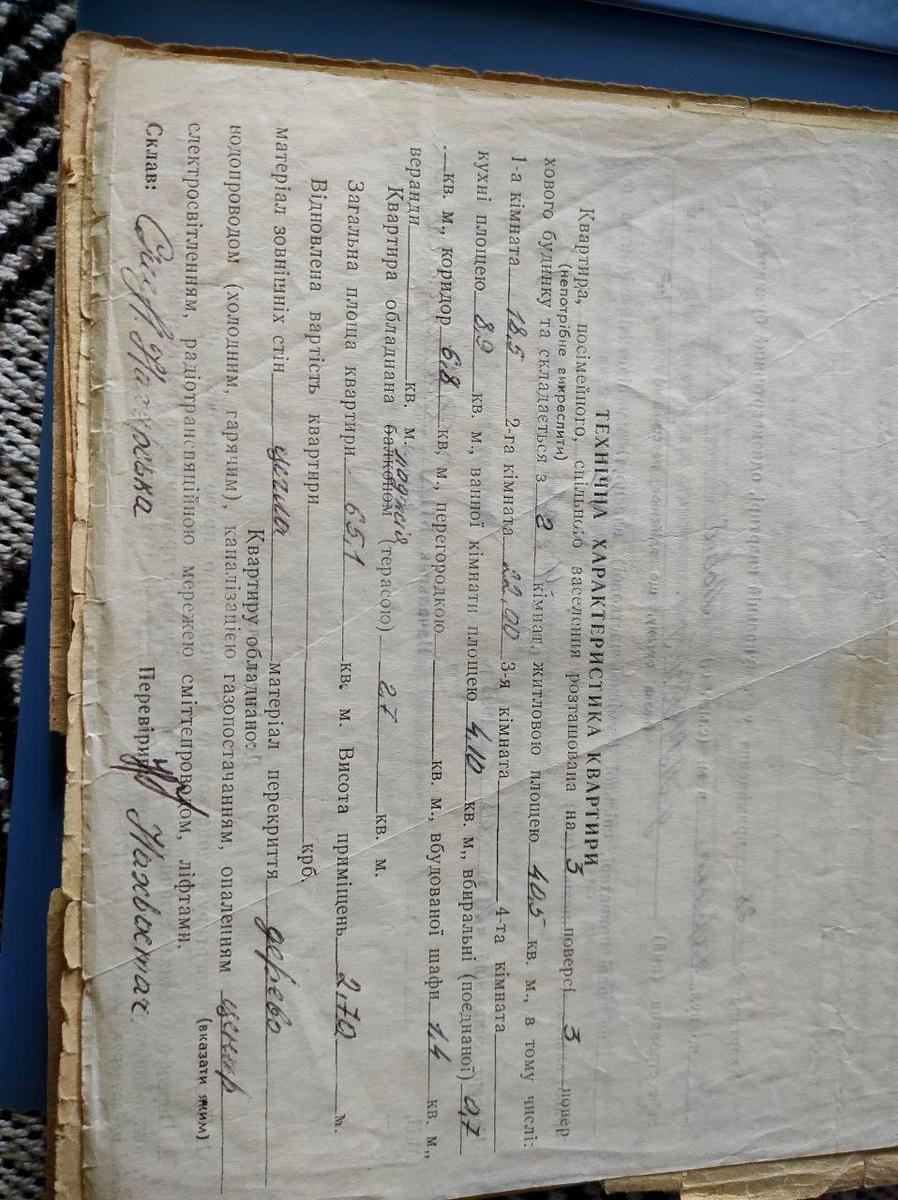 ТЕХНІЧНА ХАРАКТЕРИСТИКА КВАРТИРИ
Квартира, посімейного, спільного заселення розташована на 3 поверсі 3 повер
(непотрібне викреслити)
хового будинку та складається з 2 кімнат, житловою площею 40,5 кв. м., в тому числі:
1-а кімната 18,5 2-га кімната 22,00 3-я кімната 4-та кімната
кухні площею 8,9 кв. м., ванної кімнати площею 4,10 кв. м., вбиральні (поєднаної) 0,7
кв. м., коридор 6,8 кв. м., перегородкою кв. м., вбудованої шафи 1,4 кв. м.,
веранди кв. м.
лоджія
Квартира обладнана балконом (терасою) 2,7 кв. м.
Загальна площа квартири 65,1 кв. м. Висота приміщень 2,70 м.
Відновлена вартість квартири крб.
матеріал зовнішніх стін цегла матеріал перекриття дерево
Квартиру обладнано:
водопроводом (холодним, гарячим), каналізацією газопостачанням, опаленням центр
(вказати яким)
електросвітленням, радіотрансляційною мережею сміттепроводом, ліфтами.
Склав: Перевірив